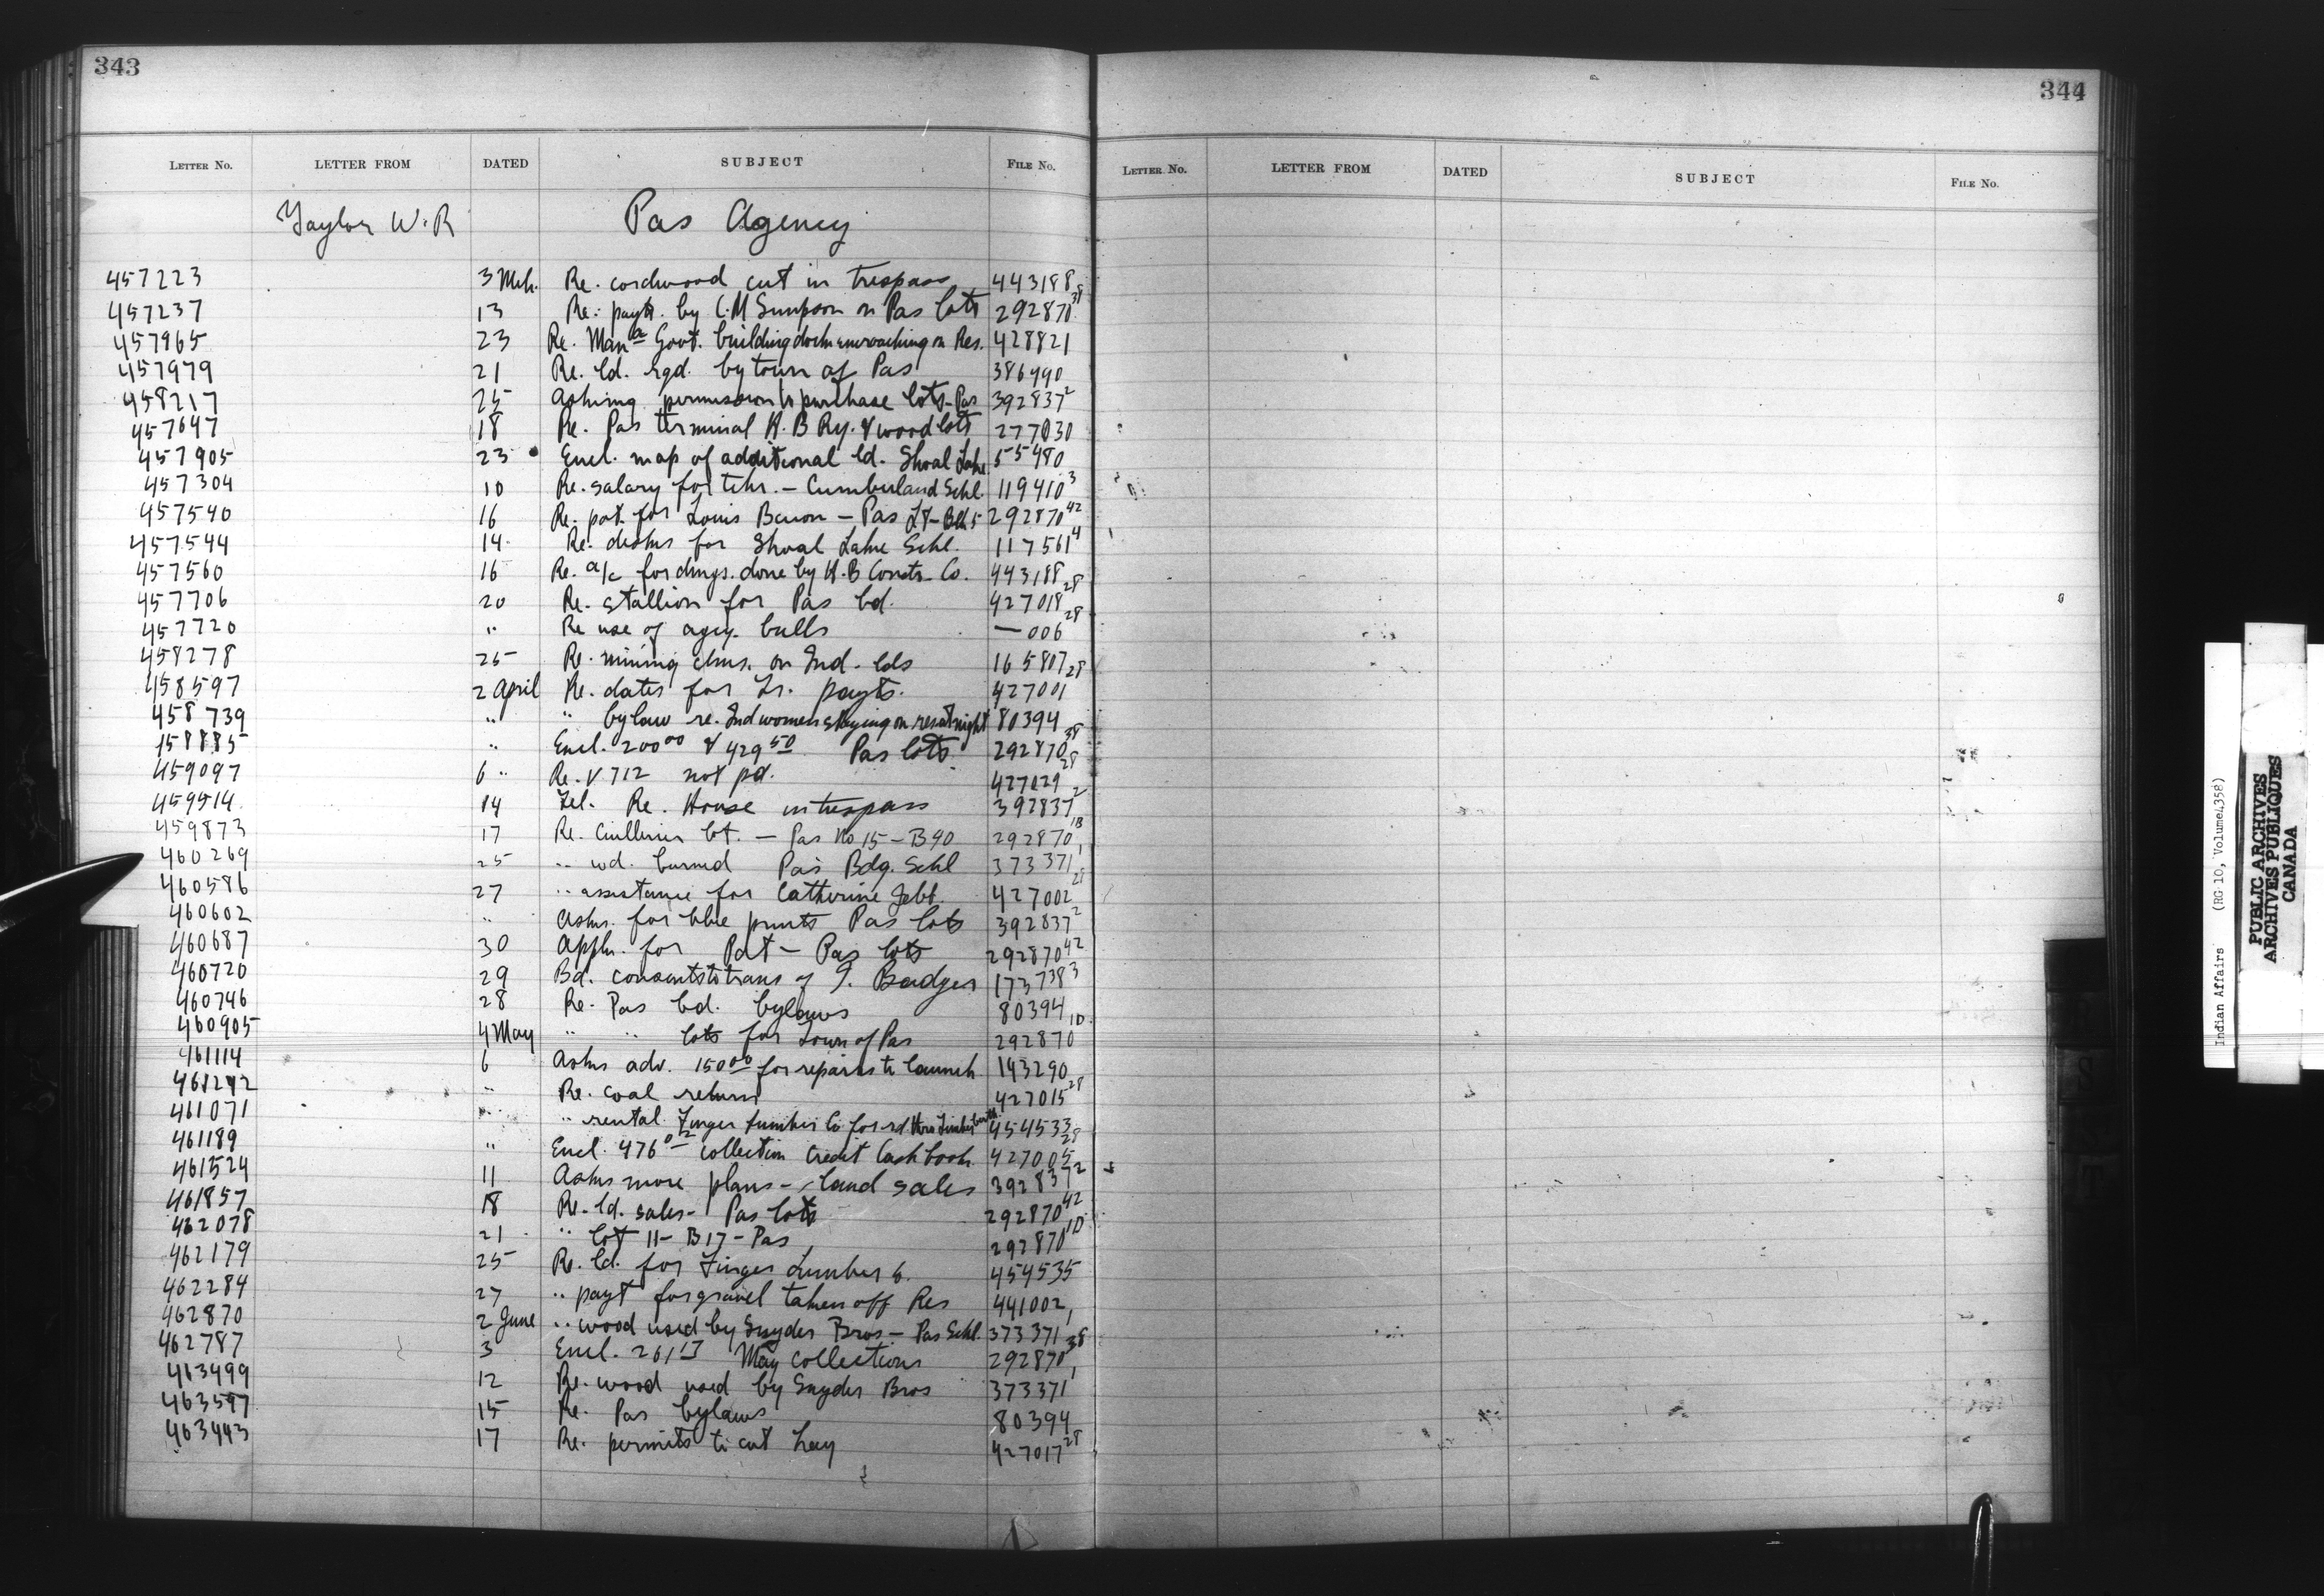 343
LETTER NO. LETTER FROM DATED SUBJECT FILE NO.
Taylor W.R Pas Agency
457223 3 Mch. Re. cordwood cut in trespass 443188
457237 13 Re. payts. by C.M Simpson on Pas lots 292870 38
457965 23 Re. Man ba Govt. building dock encroaching on Res. 428821
457979 21 Re. ld. rqd. by town of Pas 386490
458217 25 Asking permission to purchase lots - Pas 392837 2
457647 18 Re. Pas terminal H.B Ry. & wood lots 277030
457905 23 Encl. map of additional ld. Shoal Lake 55480
457304 10 Re. salary for tchr. - Cumberland Schl. 119410 3
457540 16 Re. pat. for Louis - Pas L8 - Blk 5 292870 42
457544 14 Re. desks for Shoal Lake Schl. 117561 4
457560 16 Re. a/c for dmgs. done by H.B Constr. Co. 443188
457706 20 Re. stallion for Pas bd. 427018 28
457720 " Re use of agcy. bulls — 006 28
458278 25 Re. mining clms. on Ind. lds 165807
458597 2 April Re. dates for Tr. payts. 427001 28
458739 " " bylaw re. Ind women staying on res at night 80394
458885 " Encl. 200 00 & 429 50 Pas lots 292870 38
459097 6 " Re. V 712 not pd. 427029 28
459514 14 Tel. Re. House in trespass 392837 2
459873 17 Re. lot. - Pas No 15 - B40 292870 18
460269 25 " wd. burned Pas Bdg. Schl 373371 1
460586 27 " assistance for Catherine 427002 28
460602 " Asks. for blue prints Pas lots 392837 2
460687 30 Appln. for Pat - Pas lots 292870 42
460720 29 Bd. consents to trans of J. Badger 173738 3
460746 28 Re. Pas bd. bylaws 80394
460905 4 May " " lots for Town of Pas 292870 10
461114 6 Asks adv. 150 00 for repairs to launch 143290
461242 " Re. coal return 427015 28
461071 " " rental Finger Lumber Co for rd thro Timber berth 454533
461189 " Encl. 476 02 collection Credit Cash book 427005 28
461524 11 Asks more plans - land sales 392837 2
461857 18 Re. ld. sales - Pas lots 292870 42
462078 21 " lot 11 - B17 - Pas 292870 10
462179 25 Re. ld. for Finger Lumber Co. 454535
462284 27 " payt for gravel taken off Res 441002
462870 2 June " wood used by Snyder Bros - Pas Schl. 373371 1
462787 3 Encl. 261 17 May collections 292870 38
463499 12 Re. wood used by Snyder Bros 373371 1
463597 15 Re. Pas bylaws 80394
463443 17 Re. permits to cut hay 427017 28
344
LETTER NO. LETTER FROM DATED SUBJECT FILE NO.
Indian Affairs (RG 10, Volume 4358)
PUBLIC ARCHIVES
ARCHIVES PUBLIQUES
CANADA